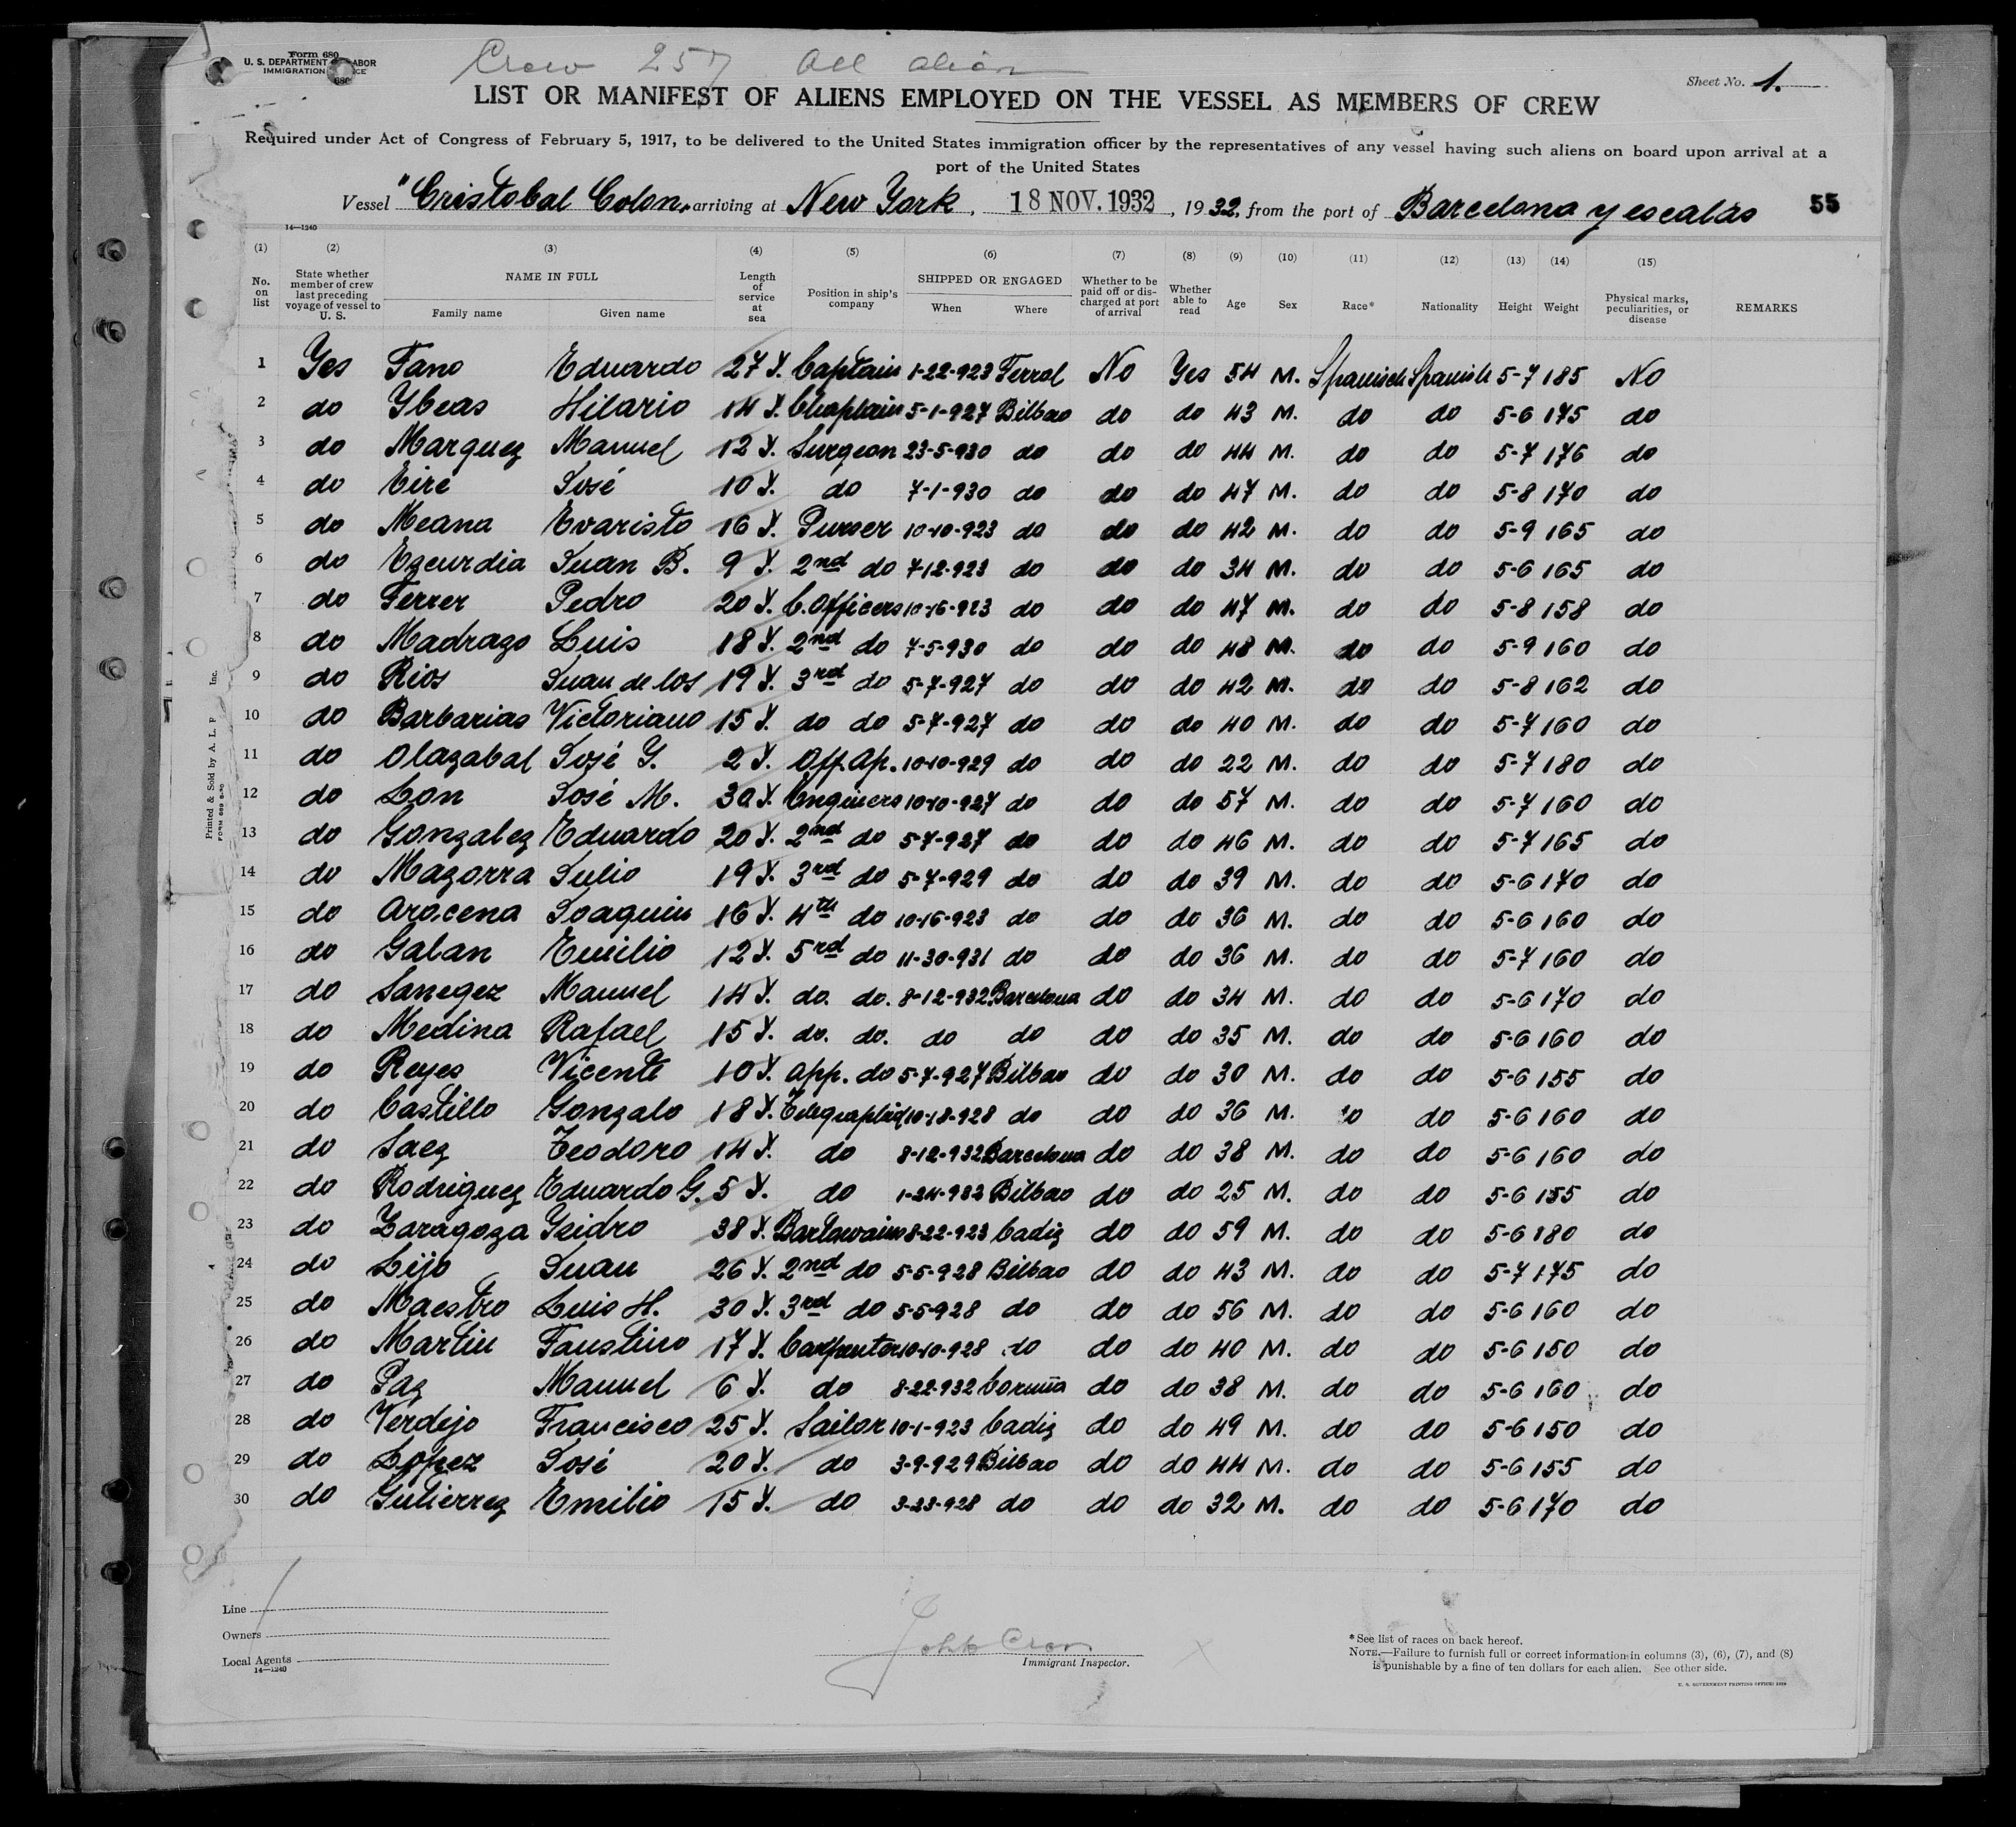 Form 680
U. S. DEPARTMENT LABOR
IMMIGRATION
680
Crew 257 All alien
Sheet No. 1.
LIST OR MANIFEST OF ALIENS EMPLOYED ON THE VESSEL AS MEMBERS OF CREW
Required under Act of Congress of February 5, 1917, to be delivered to the United States immigration officer by the representatives of any vessel having such aliens on board upon arrival at a
port of the United States
Vessel "Cristobal Colon" arriving at New York, 18 NOV. 1932, 1932, from the port of Barcelona y escalas 55
14—1240
(1) (2) (3) (4) (5) (6) (7) (8) (9) (10) (11) (12) (13) (14) (15)
No. on list State whether member of crew last preceding voyage of vessel to U. S. NAME IN FULL Family name Given name Length of service at sea Position in ship's company SHIPPED OR ENGAGED When Where Whether to be paid off or discharged at port of arrival Whether able to read Age Sex Race* Nationality Height Weight Physical marks, peculiarities, or disease REMARKS
1 Yes Fano Eduardo 27 Y. Captain 1-22-923 Ferrol No Yes 54 M. Spanish Spanish 5-7 185 No
2 do Ybeas Hilario 14 Y. Chaplain 5-1-927 Bilbao do do 43 M. do do 5-6 175 do
3 do Marquez Manuel 12 Y. Surgeon 23-5-930 do do do 44 M. do do 5-7 176 do
4 do Eire José 10 Y. do 7-1-930 do do do 47 M. do do 5-8 170 do
5 do Meana Evaristo 16 Y. Purser 10-10-923 do do do 42 M. do do 5-9 165 do
6 do Ezcurdia Juan B. 9 Y. 2nd do 7-12-923 do do do 34 M. do do 5-6 165 do
7 do Ferrer Pedro 20 Y. C. Officers 10-16-923 do do do 47 M. do do 5-8 158 do
8 do Madrazo Luis 18 Y. 2nd do 7-5-930 do do do 48 M. do do 5-9 160 do
9 do Rios Juan de los 19 Y. 3rd do 5-7-927 do do do 42 M. do do 5-8 162 do
10 do Barbarias Victoriano 15 Y. do do 5-7-927 do do do 40 M. do do 5-7 160 do
11 do Olazabal José Y. 2 Y. Off. Ap. 10-10-929 do do do 22 M. do do 5-7 180 do
12 do Lon José M. 30 Y. Engineers 10-10-927 do do do 57 M. do do 5-7 160 do
13 do Gonzalez Eduardo 20 Y. 2nd do 5-7-927 do do do 46 M. do do 5-7 165 do
14 do Mazorra Julio 19 Y. 3rd do 5-7-929 do do do 39 M. do do 5-6 170 do
15 do Arocena Joaquin 16 Y. 4th do 10-16-923 do do do 36 M. do do 5-6 160 do
16 do Galan Emilio 12 Y. 5rd do 11-30-931 do do do 36 M. do do 5-7 160 do
17 do Sanegez Manuel 14 Y. do. do. 8-12-932 Barcelona do do 34 M. do do 5-6 170 do
18 do Medina Rafael 15 Y. do. do. do do do do 35 M. do do 5-6 160 do
19 do Reyes Vicente 10 Y. App. do 5-7-927 Bilbao do do 30 M. do do 5-6 155 do
20 do Castillo Gonzalo 18 Y. 10-18-928 do do do 36 M. do do 5-6 160 do
21 do Saez Teodoro 14 Y. do 8-12-932 Barcelona do do 38 M. do do 5-6 160 do
22 do Rodriguez Eduardo G. 5 Y. do 1-24-932 Bilbao do do 25 M. do do 5-6 155 do
23 do Zaragoza Ysidro 38 Y. 8-22-923 Cadiz do do 59 M. do do 5-6 180 do
24 do Lijo Juan 26 Y. 2nd do 5-5-928 Bilbao do do 43 M. do do 5-7 175 do
25 do Maestro Luis H. 30 Y. 3rd do 5-5-928 do do do 56 M. do do 5-6 160 do
26 do Martin Faustino 17 Y. Carpenter 10-10-928 do do do 40 M. do do 5-6 150 do
27 do Paz Manuel 6 Y. do 8-22-932 Coruña do do 38 M. do do 5-6 160 do
28 do Verdejo Francisco 25 Y. Sailor 10-1-923 Cadiz do do 49 M. do do 5-6 150 do
29 do Lopez José 20 Y. do 3-9-929 Bilbao do do 44 M. do do 5-6 155 do
30 do Gutierrez Emilio 15 Y. do 3-23-928 do do do 32 M. do do 5-6 170 do
Printed & Sold by A. L. P Inc.
Line
Owners
Local Agents
14—1240
Immigrant Inspector.
*See list of races on back hereof.
NOTE.—Failure to furnish full or correct information in columns (3), (6), (7), and (8)
is punishable by a fine of ten dollars for each alien. See other side.
U. S. GOVERNMENT PRINTING OFFICE: 1929